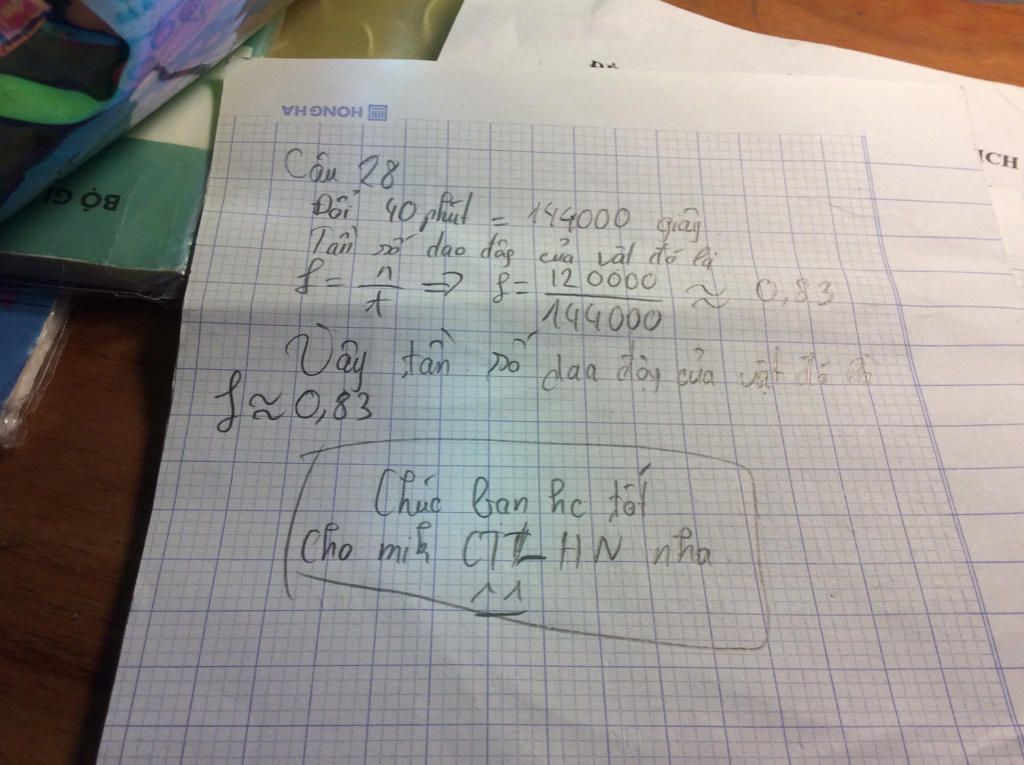 HONG HA
BỘ GI
ICH
Câu 28
Đổi 40 phút = 144000 giây
Tần số dao độg của vật đó là
f = n/t => f = 120000/144000 ≈ 0,83
Vậy tần số daa độg của vật đó là
f ≈ 0,83
Chúc bạn hc tốt
Cho mik CTLHN nha
^^